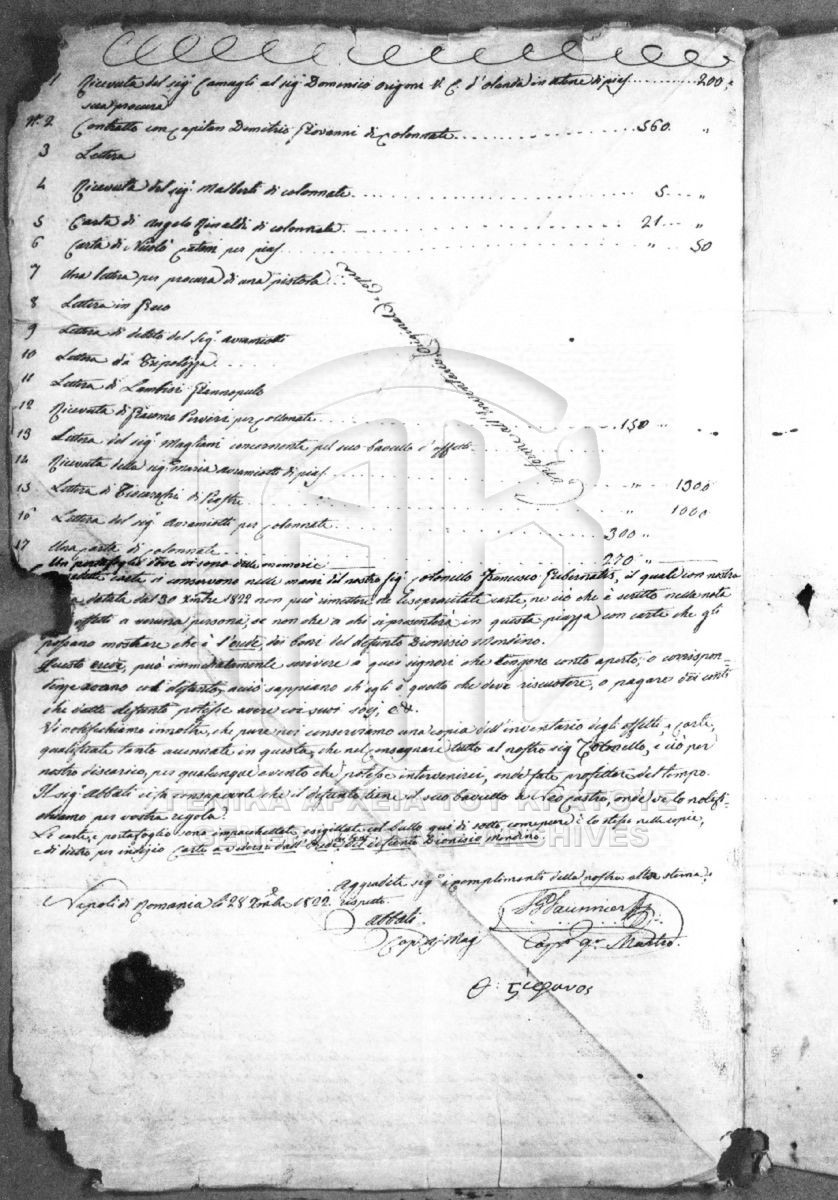 1 Ricevuta del sig. Camagli al sig. Domenico Origone V. C. d'olanda in valore di pias. 200 "
sua procura
N.º 2 Contratto con Capitan Demitrio Giovanni di Colonnate 560 "
3 Lettera
4 Ricevuta del sig. Malberti di colonnate 5 "
5 Carta di Angelo Rinaldi di colonnate 21 "
6 Carta di Nicolò per pias. " 50
7 Una lettera per procura di una pistola
8 Lettera in Greco
9 Lettera di debito del Sig. Avramiotti
10 Lettera da Tripolizza
11 Lettera di Giannopulo
12 Ricevuta di Giacomo per Colonnate 150 "
13 Lettera del sig. Magliani concernente pel suo baullo e effetti
14 Ricevuta della sig. Maria Avramiotti di pias. " 1300
15 Lettera di di Piastre " 1000
16 Lettera del sig. Avramiotti per colonnate 300 "
17 Una carta di colonnate 270 "
Conforme all'Inventario Originale Copia
Un portafoglio dove vi sono delle memorie
carte si conservono nelle mani del nostro Sig. Colonello Francesco Gubernatis, il quale con nostra
datata del 30 Xmbre 1822 non può rimettere le sopracitate carte, ne ciò che è scritto nella nota
effetti a veruna persona, se non che a chi si presenterà in questa piazza con carte che gli
possano mostrare che è l'erede dei beni del defunto Dionisio
Questo erede, può immediatamente scrivere a quei signori che tengono conto aperto, o corrispon-
col defunto, acciò sappiano ch'egli è quello che deve riscuotere, o pagare dei conti
che detto defunto potesse avere coi suoi soci, &.
Vi notifichiamo inoltre, che pure noi conserviamo una copia dell'inventario degli effetti, e carte,
qualificate tanto accennate in questa, che nel consegnare tutto al nostro sig. Colonello, e ciò per
nostro discarico, per qualunque evento che potesse intervenirci, onde fate profittare del tempo.
Il sig. Abbati ci fa consapevole che il defunto tiene il suo bauletto a Neo Castro, onde ve lo notifi-
chiamo per vostra regola.
Le carte, e portafoglio sono impacchettate, e sigillate col bullo qui di sotto come pure è lo stesso nelle copie,
e di dietro per indizio Carte a vedersi dall' del defunto Dionisio
Aggradite sig. i complimenti della nostra alta stima, e
Napoli di Romania li 28 Xmbre 1822 rispetto
Abbati
Cap. Maj.
Cap.